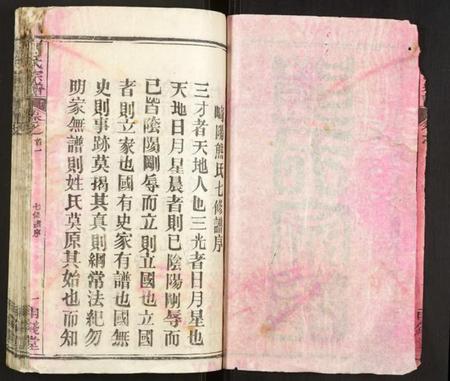 崎陽熊氏七修譜序
三才者天地人也三光者日月星也
天地日月星晨者則已陰陽剛辱而
已皆陰陽剛辱而立則立國也立國
者則立家也國有史家有譜也國無
史則事跡莫揭其真則綱常法紀勿
明家無譜則姓氏莫原其始也而知
氏宗譜
卷之首一
七修譜序